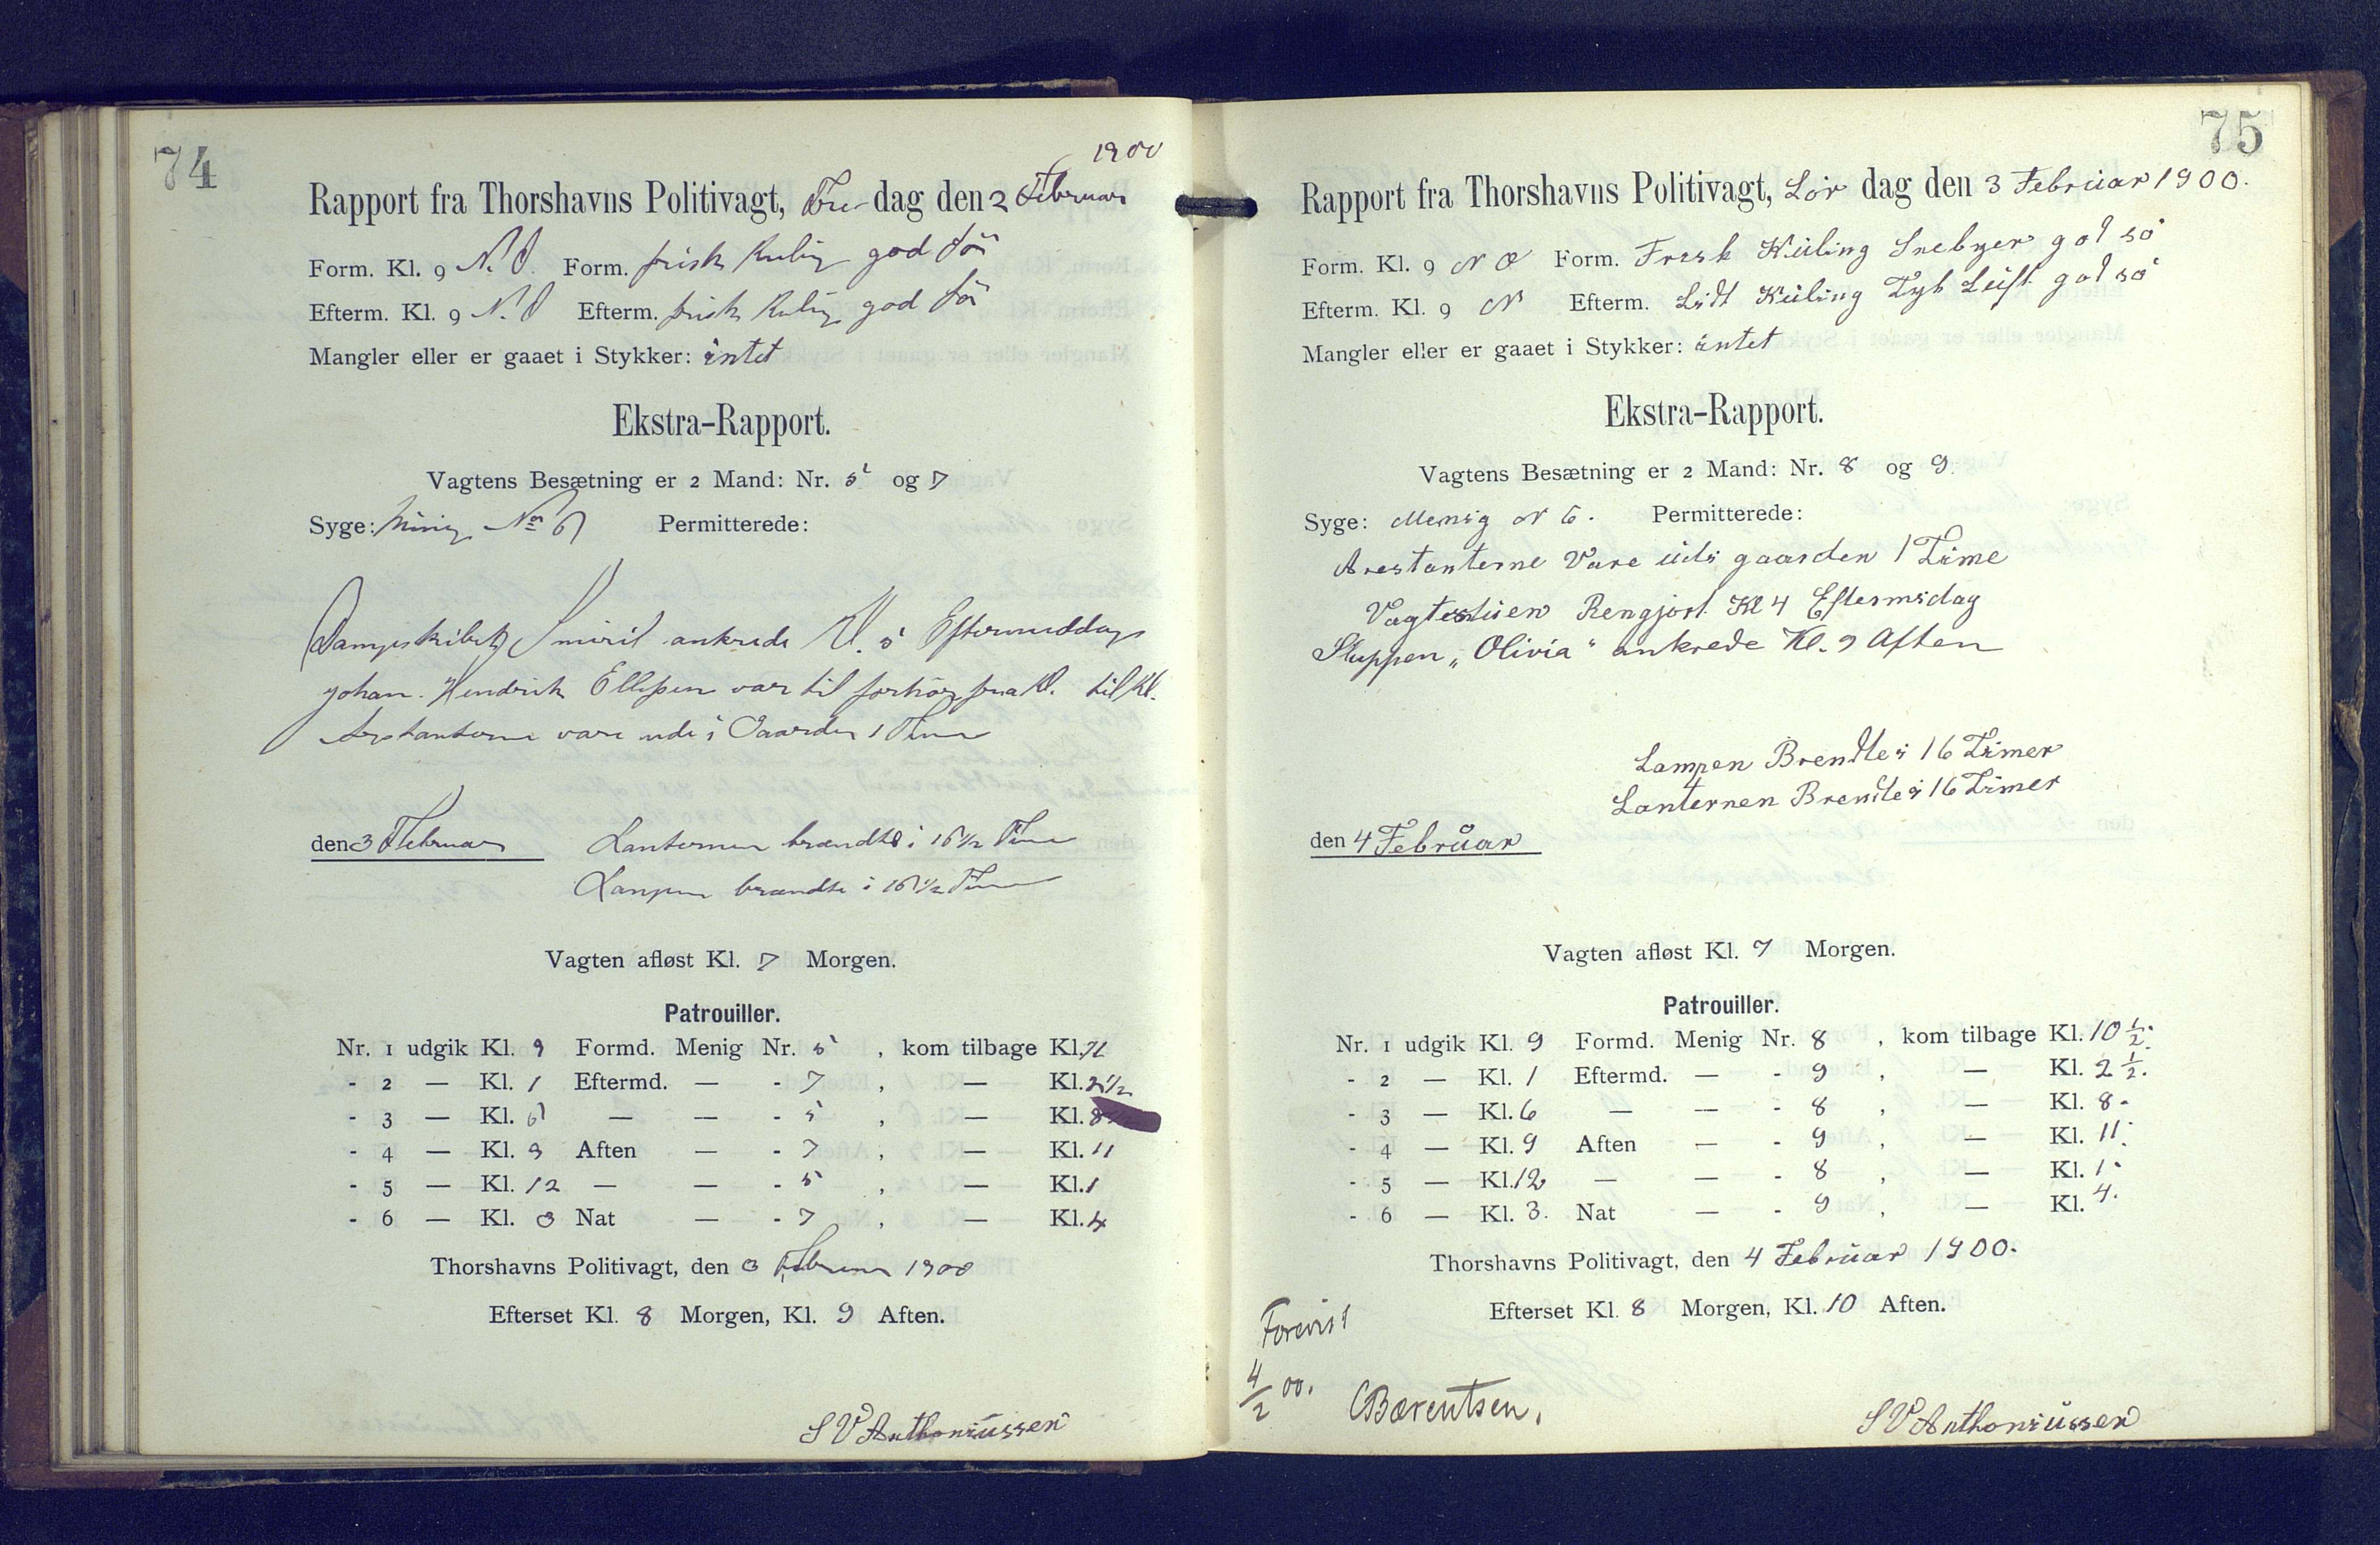 74
1900
Rapport fra Thorshavns Politivagt, Fre-dag den 2 Februar
Form. Kl. 9 N. O. Form. frisk Kuling god Sö
Efterm. Kl. 9 N. O Efterm. frisk Kuling god Sö
Mangler eller er gaaet i Stykker: intet
Ekstra-Rapport.
Vagtens Besætning er 2 Mand: Nr. 5 og 7
Syge: Menig No 6 Permitterede:
Dampskibet Smiril ankrede Kl. 5 Eftermiddag
Johan. Hendrik Ellefsen var til forhör fra Kl. til Kl.
Arestanterne vare ude i Gaarden 1 Time
den 3 Februar Lanternen brændte i 16 1/2 Time
Lampen brændte i 16 1/2 Time
Vagten afløst Kl. 7 Morgen.
Patrouiller.
Nr. 1 udgik Kl. 9 Formd. Menig Nr. 5 , kom tilbage Kl.
- 2 — Kl. 1 Eftermd. — - 7 , — Kl. 2 1/2
- 3 — Kl. 6 — — - 5 , — Kl. 8
- 4 — Kl. 9 Aften — - 7 , — Kl. 11
- 5 — Kl. 12 — — - 5 , — Kl. 1
- 6 — Kl. 3 Nat — - 7 , — Kl. 4
Thorshavns Politivagt, den 3 Februar 1900
Efterset Kl. 8 Morgen, Kl. 9 Aften.
S V Anthoniussen
75
Rapport fra Thorshavns Politivagt, Lör dag den 3 Februar 1900.
Form. Kl. 9 N O Form. Frisk Kuling Snebyer god sö
Efterm. Kl. 9 N Efterm. Lidt Kuling Tyk Luft god sö
Mangler eller er gaaet i Stykker: intet
Ekstra-Rapport.
Vagtens Besætning er 2 Mand: Nr. 8 og 9.
Syge: Menig N 6. Permitterede:
Arestanterne Vare udi gaarden 1 Time
Vagtestuen Rengjort Kl 4 Eftermidag
Sluppen „Olivia“ ankrede Kl. 9 Aften
Lampen Brendte i 16 Timer
Lanternen Brendte i 16 Timer
den 4 Februar
Vagten afløst Kl. 7 Morgen.
Patrouiller.
Nr. 1 udgik Kl. 9 Formd. Menig Nr. 8 , kom tilbage Kl. 10 1/2.
- 2 — Kl. 1 Eftermd. — - 9 , — Kl. 2 1/2.
- 3 — Kl. 6 — — - 8 , — Kl. 8.
- 4 — Kl. 9 Aften — - 9 , — Kl. 11.
- 5 — Kl. 12 — — - 8 , — Kl. 1.
- 6 — Kl. 3. Nat — - 9 , — Kl. 4.
Thorshavns Politivagt, den 4 Februar 1900.
Efterset Kl. 8 Morgen, Kl. 10 Aften.
Forevist
4/2 00.
CBærentsen.
S V Anthoniussen